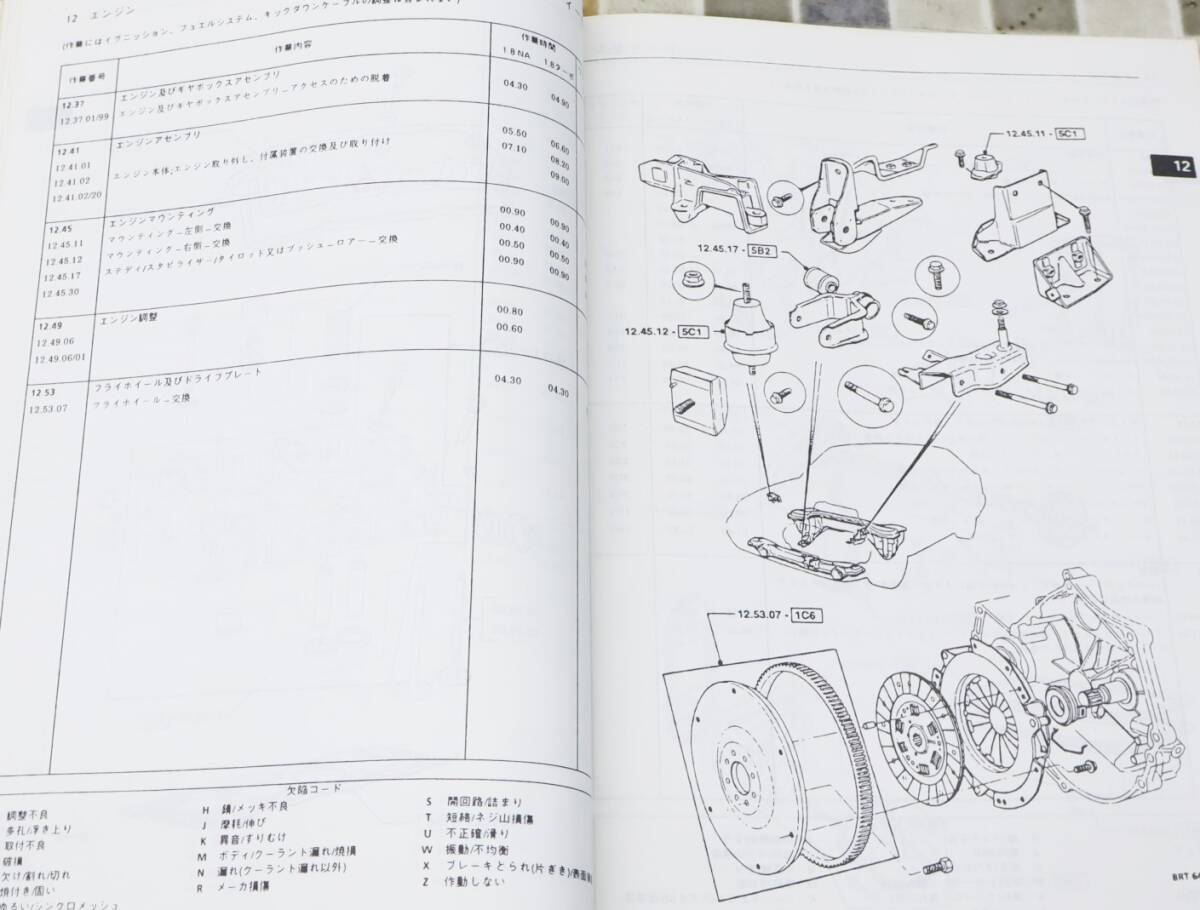 12 エンジン
(作業にはイグニッション、フュエルシステム、キックダウンケーブルの調整は含まれます)
作業番号
作業内容
作業時間
1.8NA 1.8ターボ
12.37 エンジン及びギヤボックスアセンブリ
12.37.01/99 エンジン及びギヤボックスアセンブリ—アクセスのための脱着 04.30 04.90
12.41 エンジンアセンブリ
12.41.01 05.50 06.60
12.41.02 エンジン本体;エンジン取り外し、付属装置の交換及び取り付け 07.10 08.20
12.41.02/20 09.00
12.45 エンジンマウンティング
12.45.11 マウンティング—左側—交換 00.90 00.90
12.45.12 マウンティング—右側—交換 00.40 00.40
12.45.17 ステディ/スタビライザー/タイロッド又はブッシュ—ロアー—交換 00.50 00.50
12.45.30 00.90 00.90
12.49 エンジン調整
12.49.06 00.80
12.49.06/01 00.60
12.53 フライホイール及びドライブプレート
12.53.07 フライホイール—交換 04.30 04.30
欠陥コード
調整不良
多孔/浮き上り
取付不良
破損
欠け/割れ/切れ
焼付き/固い
ゆるい/シンクロメッシュ
H 錆/メッキ不良
J 摩耗/伸び
K 異音/すりむけ
M ボディ/クーラント漏れ/焼損
N 漏れ(クーラント漏れ以外)
R メーカ損傷
S 開回路/詰まり
T 短絡/ネジ山損傷
U 不正確/滑り
W 振動/不均衡
X ブレーキとられ(片ぎき)/表面
Z 作動しない
12.45.11 - 5C1
12
12.45.17 - 5B2
12.45.12 - 5C1
12.53.07 - 1C6
BRT